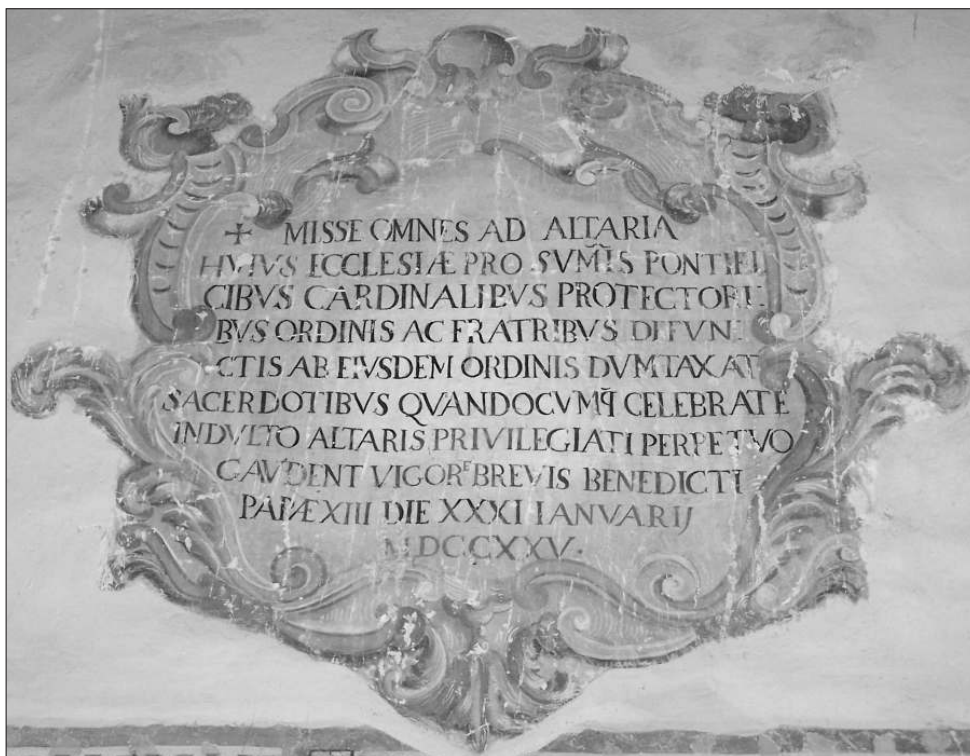 ✠ MISSE OMNES AD ALTARIA
HVIVS ECCLESIÆ PRO SVM̃IS PONTIFI
CIBVS CARDINALIBVS PROTECTORI
BVS ORDINIS AC FRATRIBVS DEFUN
CTIS AB EIVSDEM ORDINIS DVMTAXAT
SACERDOTIBVS QVANDOCVMQ̃ CELEBRATE
INDVLTO ALTARIS PRIVILEGIATI PERPETVO
GAVDENT VIGORᴱ BREVIS BENEDICTI
PAPÆ XIII DIE XXXI IANVARIJ
MDCCXXV.